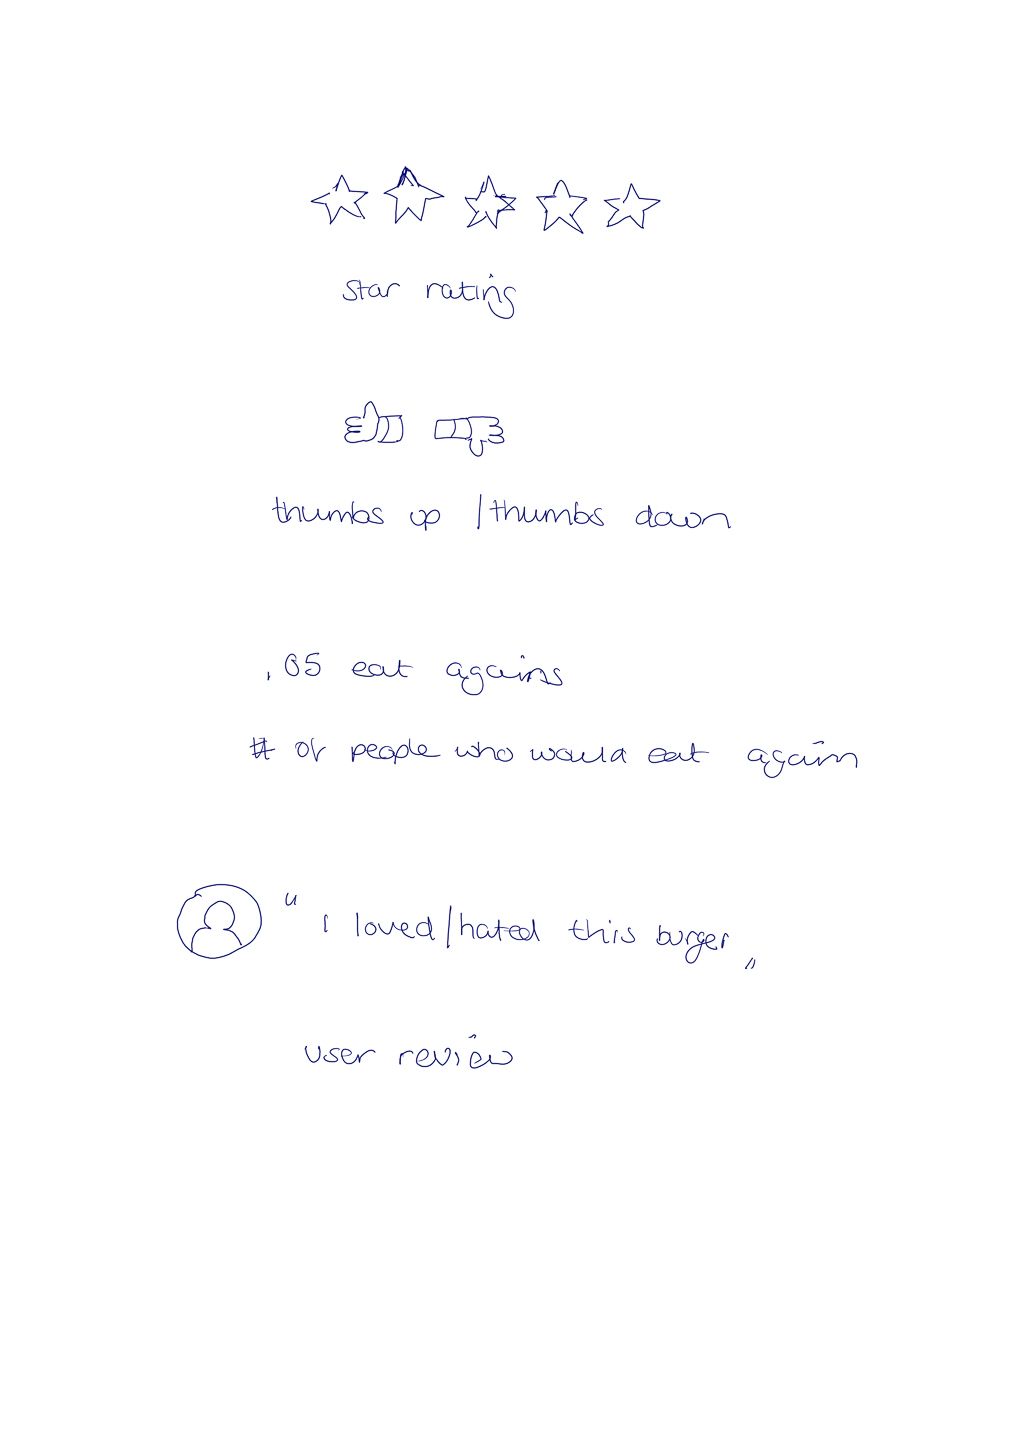 star rating
thumbs up / thumbs down
65 eat agains
# of people who would eat again
" I loved/hated this burger "
user review